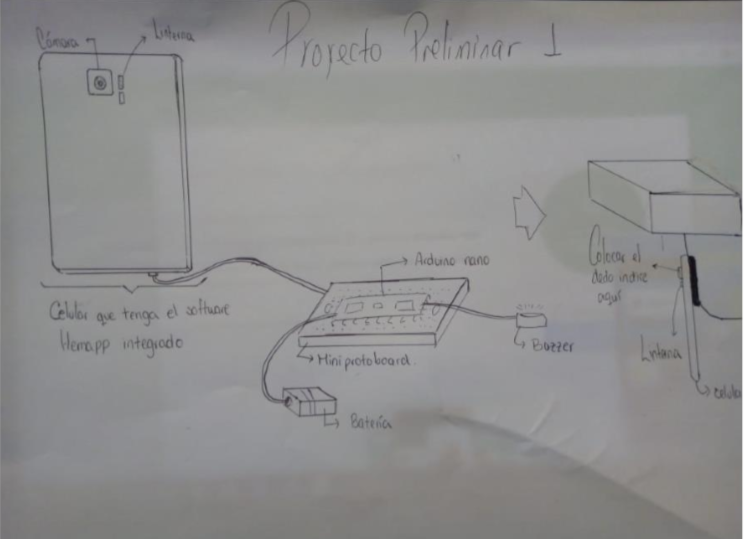 Proyecto Preliminar 1
Cámara
Linterna
Arduino nano
Celular que tenga el software
Hemapp integrado
Mini protoboard.
Buzzer
Batería
Colocar el
dedo indice
aquí
Linterna
Celular